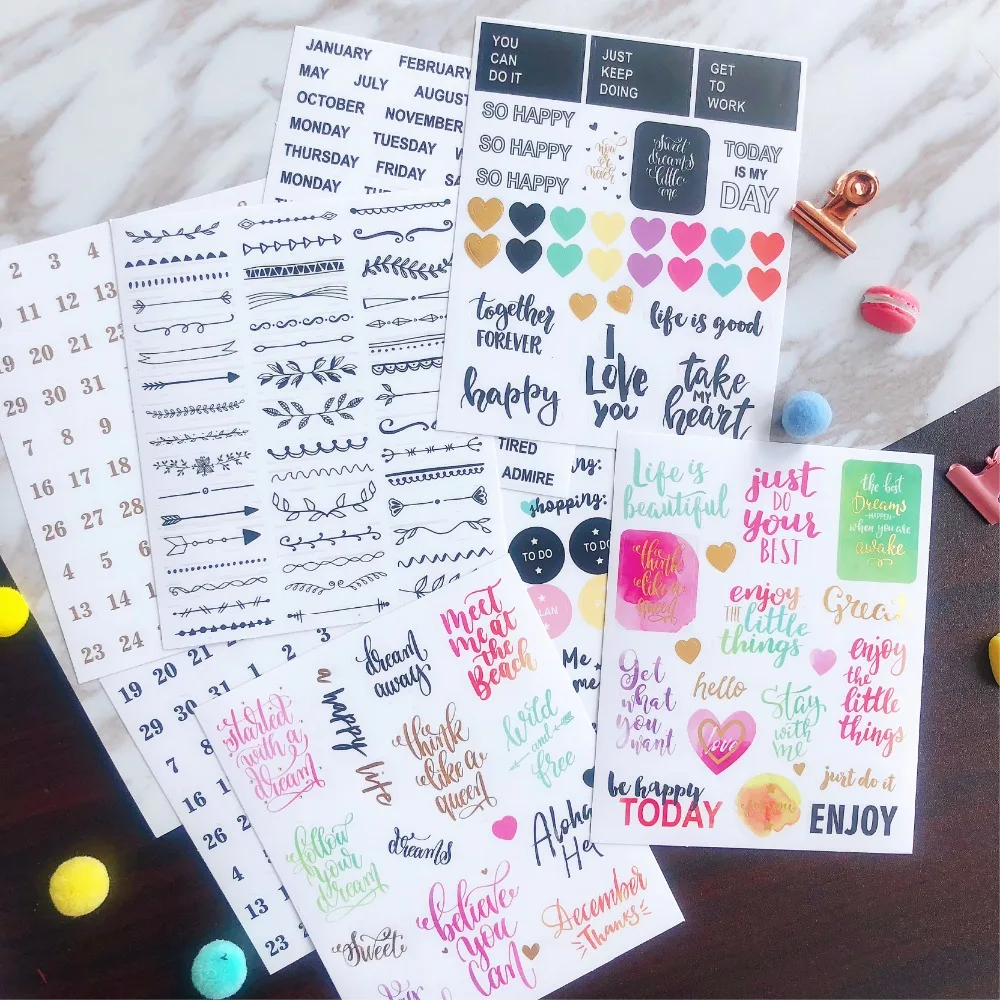 JANUARY FEBRUARY
MAY JULY AUGUST
OCTOBER NOVEMBER
MONDAY TUESDAY
THURSDAY FRIDAY
MONDAY
YOU
CAN
DO IT
JUST
KEEP
DOING
GET
TO
WORK
SO HAPPY
SO HAPPY
SO HAPPY
now
or
never
sweet
dreams
little
one
TODAY
IS MY
DAY
together
FOREVER
life is good
happy
I
Love
you
take
MY
heart
2 3 4
11 12 13
19 20 21
29 30 31
7 8 9
16 17 18
26 27 28
4 5 6
13 14 1
23 24
19 20
29 30
7
16 1
26
4
13
23
TIRED
ADMIRE
shopping:
TO DO
TO DO
PLAN
Me
me
Life is
beautiful
just
DO
your
BEST
the best
Dreams
HAPPEN
when you are
awake
think
like a
queen
enjoy
THE little
things
Great
Get
what
you
want
hello
Stay
with
me
enjoy
the
little
things
love
be happy
TODAY
just do it
ENJOY
started
with a
dream
a happy life
dream
away
meet
me at
the
Beach
think
like a
queen
wild
and
free
follow
your
dream
dreams
Aloha
sweet
believe
you
can
December
Thanks